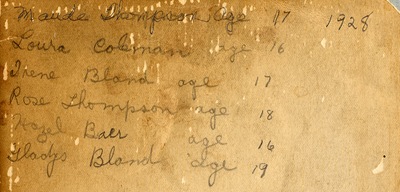 Maude Thompson Age 17 1928
Loura Coleman age 16
Irene Bland age 17
Rose Thompson age 18
Hazel Baer age 16
Gladys Bland age 19